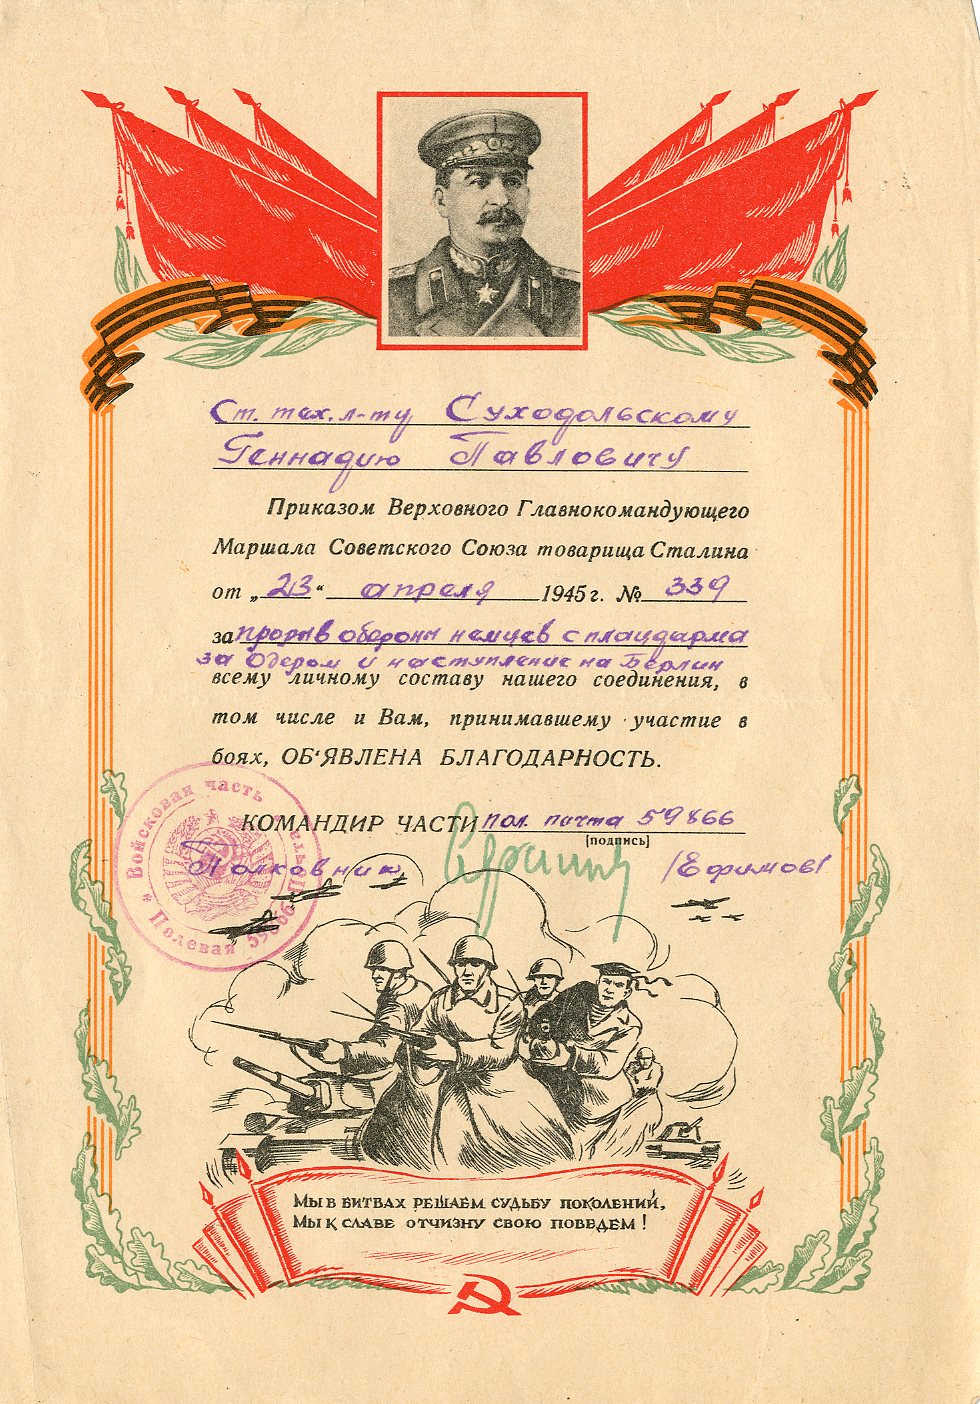 Ст. тех. л-ту Суходольскому
Геннадию Павловичу
Приказом Верховного Главнокомандующего
Маршала Советского Союза товарища Сталина
от „23“ апреля 1945 г. № 339
за прорыв обороны немцев с плацдарма
за Одером и наступление на Берлин
всему личному составу нашего соединения, в
том числе и Вам, принимавшему участие в
боях, ОБ‘ЯВЛЕНА БЛАГОДАРНОСТЬ.
КОМАНДИР ЧАСТИ пол. почта 59866
[подпись]
Полковник /Ефимов/
Войсковая часть
* Полевая почта 59866 *
МЫ В БИТВАХ РЕШАЕМ СУДЬБУ ПОКОЛЕНИЙ,
МЫ К СЛАВЕ ОТЧИЗНУ СВОЮ ПОВЕДЕМ!